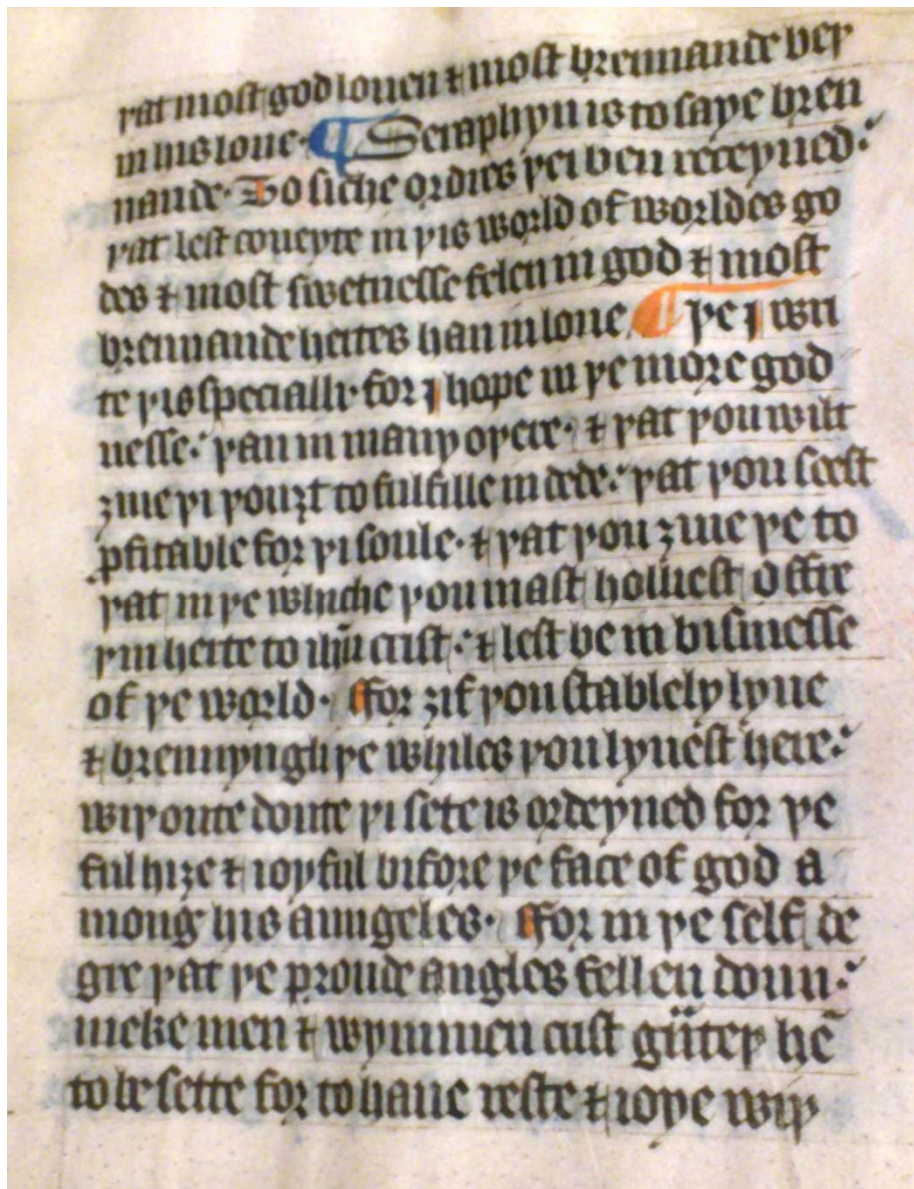 þat most god louen & most brennande beþ
in his loue· ¶ Seraphyn is to saye bren
nande· To siche ordres þei ben receyued:
þat lest coueyte in þis world of worldes go
des & most swetnesse felen in god & most
brennande hertes han in loue ¶ þe I wri
te þis specially· for I hope in þe more god
nesse: þan in many oþere· & þat þou wilt
ȝiue þi þouȝt to fulfille in dede: þat þou seest
pfitable for þi soule· & þat þou ȝiue þe to
þat in þe whiche þou mast holliest offre
þin herte to ihū crist: & lest be in bisinesse
of þe world· ffor ȝif þou stablely lyue
& brennyngliþe whiles þou lyuest here:
wiþoute doute þi sete is ordeyned for þe
ful hiȝe & ioyful bifore þe face of god a
mong his aungeles· ffor in þe self de
gre þat þe proude angles fellen doun:
meke men & wymmen crist gūteþ hē
to be sette for to haue reste & ioye wiþ